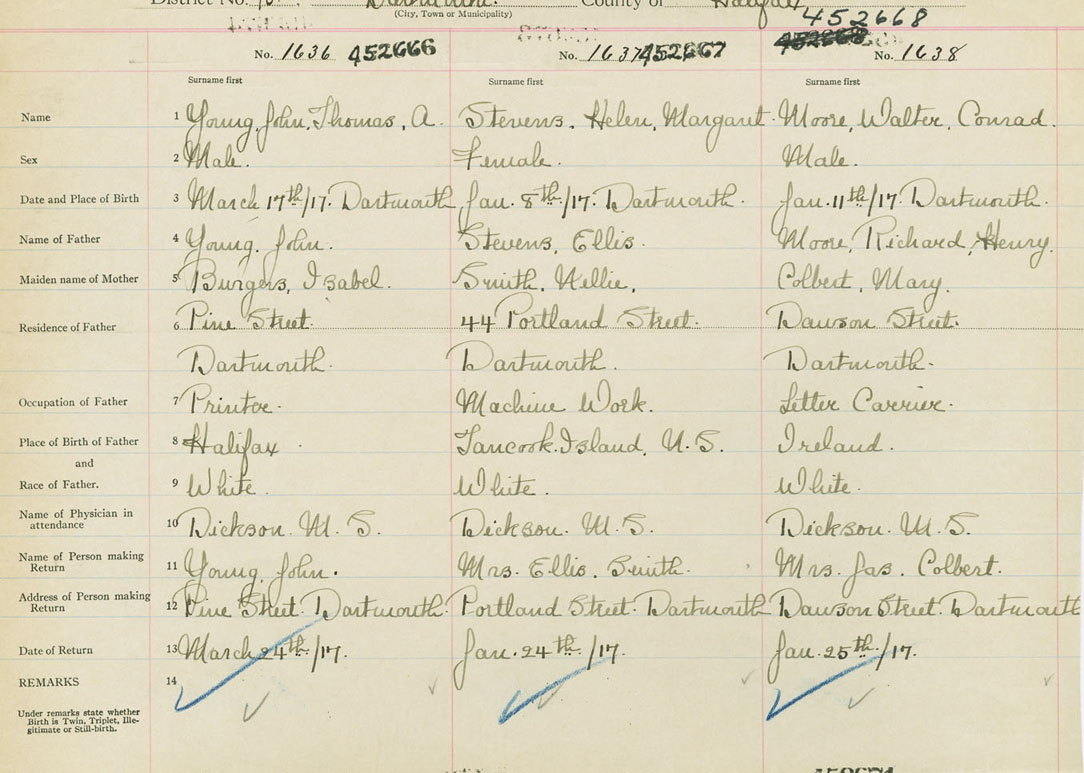 District No. County of Halifax
(City, Town or Municipality)
452668
No. 1636 452666 No. 1637 452667 No. 1638
Surname first Surname first Surname first
Name 1 Young, John, Thomas, A. Stevens, Helen, Margaret. Moore, Walter, Conrad.
Sex 2 Male. Female. Male.
Date and Place of Birth 3 March 17th/17. Dartmouth Jan. 8th/17. Dartmouth. Jan. 11th/17. Dartmouth.
Name of Father 4 Young, John. Stevens, Ellis. Moore, Richard, Henry.
Maiden name of Mother 5 Burgess, Isabel. Smith, Nellie, Colbert, Mary.
Residence of Father 6 Pine Street. 44 Portland Street. Dawson Street.
Dartmouth. Dartmouth. Dartmouth.
Occupation of Father 7 Printer. Machine Work. Letter Carrier.
Place of Birth of Father 8 Halifax. Tancook Island, N.S. Ireland.
and
Race of Father. 9 White. White. White.
Name of Physician in
attendance 10 Dickson. M. S. Dickson. M. S. Dickson. M. S.
Name of Person making
Return 11 Young, John. Mrs. Ellis. Smith. Mrs. Jas. Colbert.
Address of Person making
Return 12 Pine Street. Dartmouth. Portland Street. Dartmouth Dawson Street. Dartmouth
Date of Return 13 March 24th/17. Jan. 24th/17. Jan. 25th/17.
REMARKS 14
Under remarks state whether
Birth is Twin, Triplet, Ille-
gitimate or Still-birth.